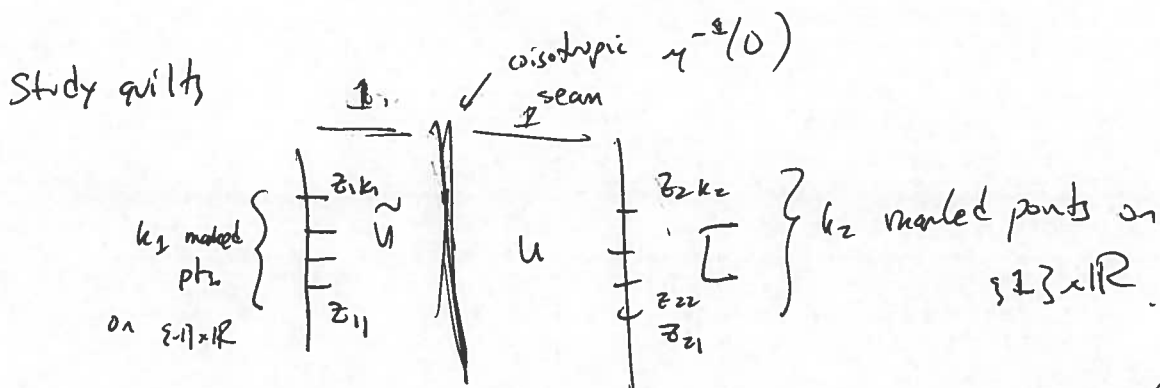 Study quilts
coisotropic μ⁻¹(0)
seam
1
1
k₁ marked
pts
on {-1}×ℝ
z₁k₁
z₁₁
ũ
u
L
z₂k₂
z₂₂
z₂₁
k₂ marked points on
{1}×ℝ.